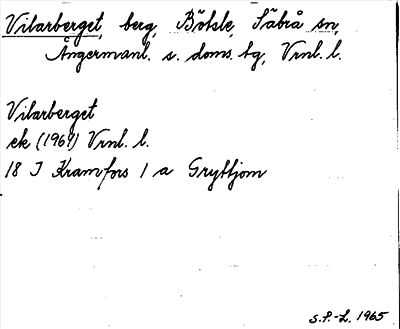 Vilarberget, berg, Bötsle, Säbrå sn,
Ångermanl. s. doms. tg, Vrnl. l.
Vilarberget
ek (1964) Vrnl. l.
18 I Kramfors 1 a Gryttjom
S.P.-L. 1965